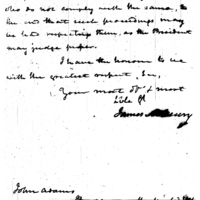 who do not comply with the same, to
the end that such proceedings may
be had respecting them, as the President
may judge proper.
I have the honour to be
with the greatest respect, Sir,
Your most obt & most
James McHenry
John Adams